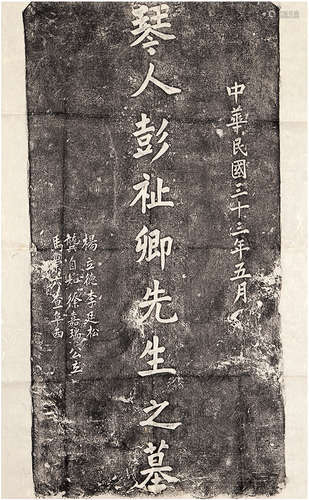 中華民國三十三年五月
琴人彭祉卿先生之墓
楊立德 李廷松
龔自知 徐嘉瑞 公立
馬